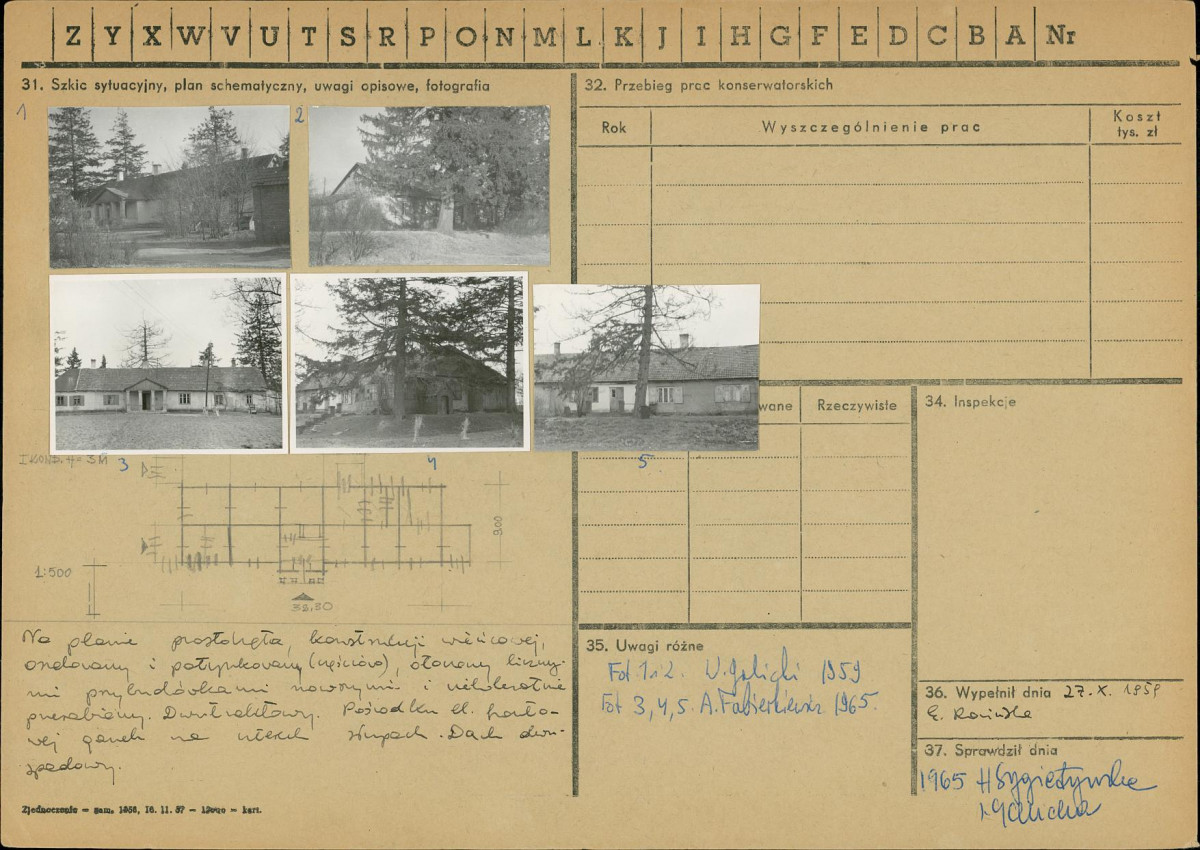 Z Y X W V U T S R P O N M L K J I H G F E D C B A Nr
31. Szkic sytuacyjny, plan schematyczny, uwagi opisowe, fotografia
1
2
3
4
5
I KOND. H = 3 M
9.00
1:500
38,30
Na planie prostokąta, konstrukcji wieńcowej,
oszalowany i potynkowany (częściowo), otoczony liczny-
mi przybudówkami nowszymi i wielokrotnie
przerabiany. Dwutraktowy. Pośrodku el. fronto-
wej ganek na słupach. Dach dwu-
spadowy.
Zjednoczenie – zam. 1958, 16. 11. 57 – kart.
32. Przebieg prac konserwatorskich
Rok
Wyszczególnienie prac
Koszt
tys. zł
wane
Rzeczywiste
34. Inspekcje
35. Uwagi różne
Fot. 1 i 2. W. Galicki 1959
Fot 3, 4, 5. A. 1965.
36. Wypełnił dnia 27. X. 1959
37. Sprawdził dnia
1965 H Sygietyńska